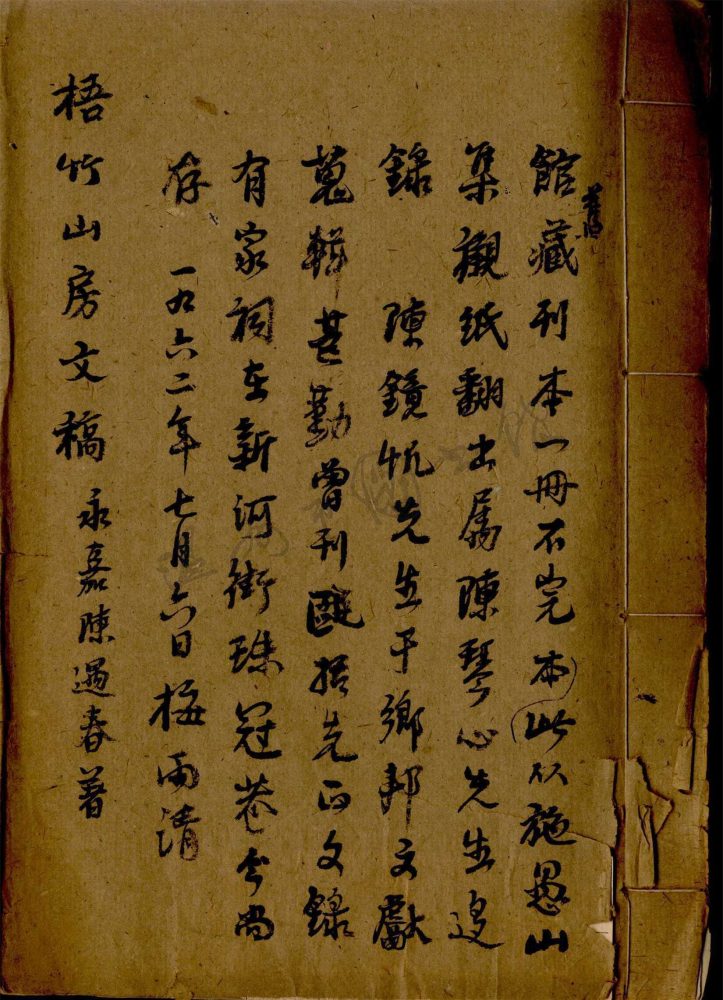 館藏刊本一冊不完本此以施愚山
集襯紙翻出属陳琴心先生逡
錄 陳鏡帆先生于鄉邦文獻
蒐輯甚勤曾刊甌括先正文錄
有家祠在新河街珠冠巷今尚
存 一九六二年七月六日梅雨清
梧竹山房文稿 永嘉陳遇春著